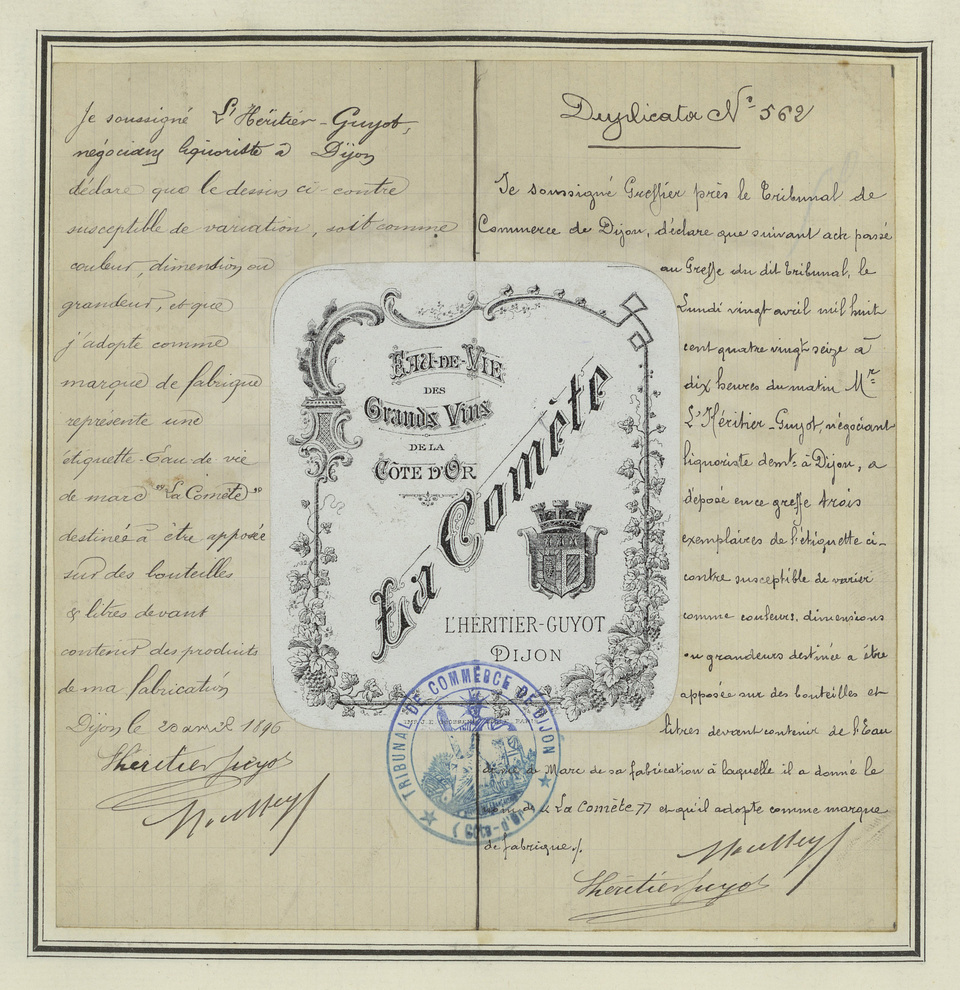 Je soussigné L'Héritier-Guyot,
négociant liquoriste à Dijon
déclare que le dessin ci-contre
susceptible de variation, soit comme
couleur, dimension ou
grandeur, et que
j'adopte comme
marque de fabrique
représente une
étiquette Eau de vie
de marc "La Comète"
destinée à être apposée
sur des bouteilles
& litres devant
contenir des produits
de ma fabrication
Dijon le 20 avril 1896
Lhéritier Guyot
Duplicata N° 562
Je soussigné Greffier près le Tribunal de
Commerce de Dijon, déclare que suivant acte passé
au Greffe du dit Tribunal, le
Lundi vingt avril mil huit
cent quatre vingt seize à
dix heures du matin Mr
L'Héritier-Guyot, négociant
liquoriste demt à Dijon, a
déposé en ce greffe trois
exemplaires de l'étiquette ci-
contre susceptible de varier
comme couleurs, dimensions
ou grandeurs destinée a être
apposée sur des bouteilles et
litres devant contenir de l'Eau
de Marc de sa fabrication à laquelle il a donné le
La Comète 77 et qu'il adopte comme marque
de fabrique ./.
Lhéritier Guyot
EAU-DE-VIE
DES
Grands Vins
DE LA
CÔTE D'OR
La Comète
L'HÉRITIER-GUYOT
DIJON
TRIBUNAL DE COMMERCE DE DIJON
(Côte-d'Or)